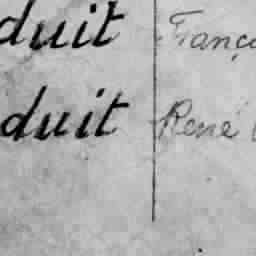 duit Franço
duit René